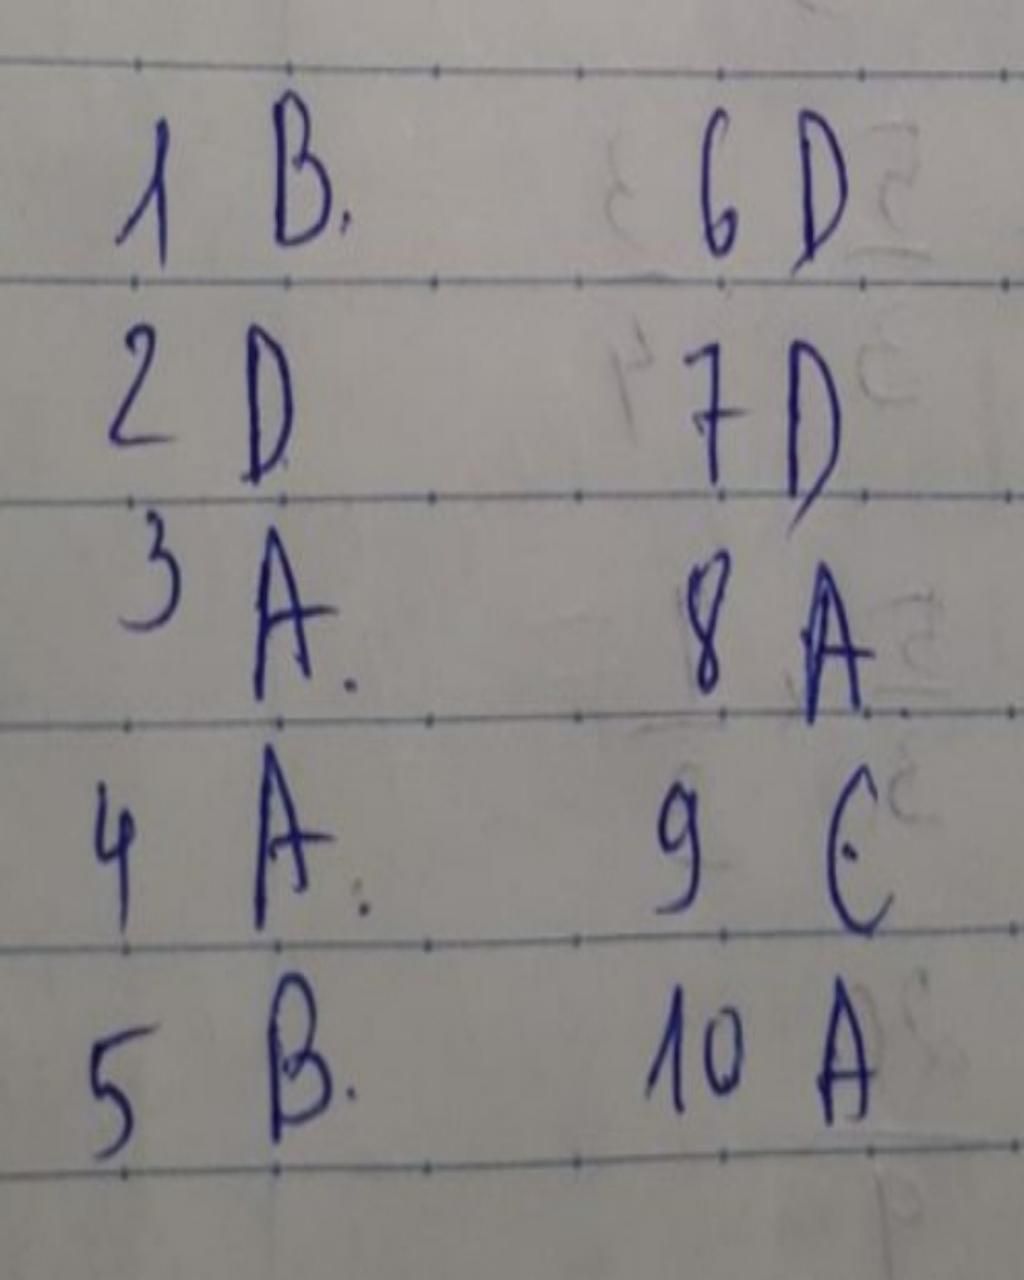 1 B.
2 D
3 A.
4 A.
5 B.
6 D
7 D
8 A
9 C
10 A